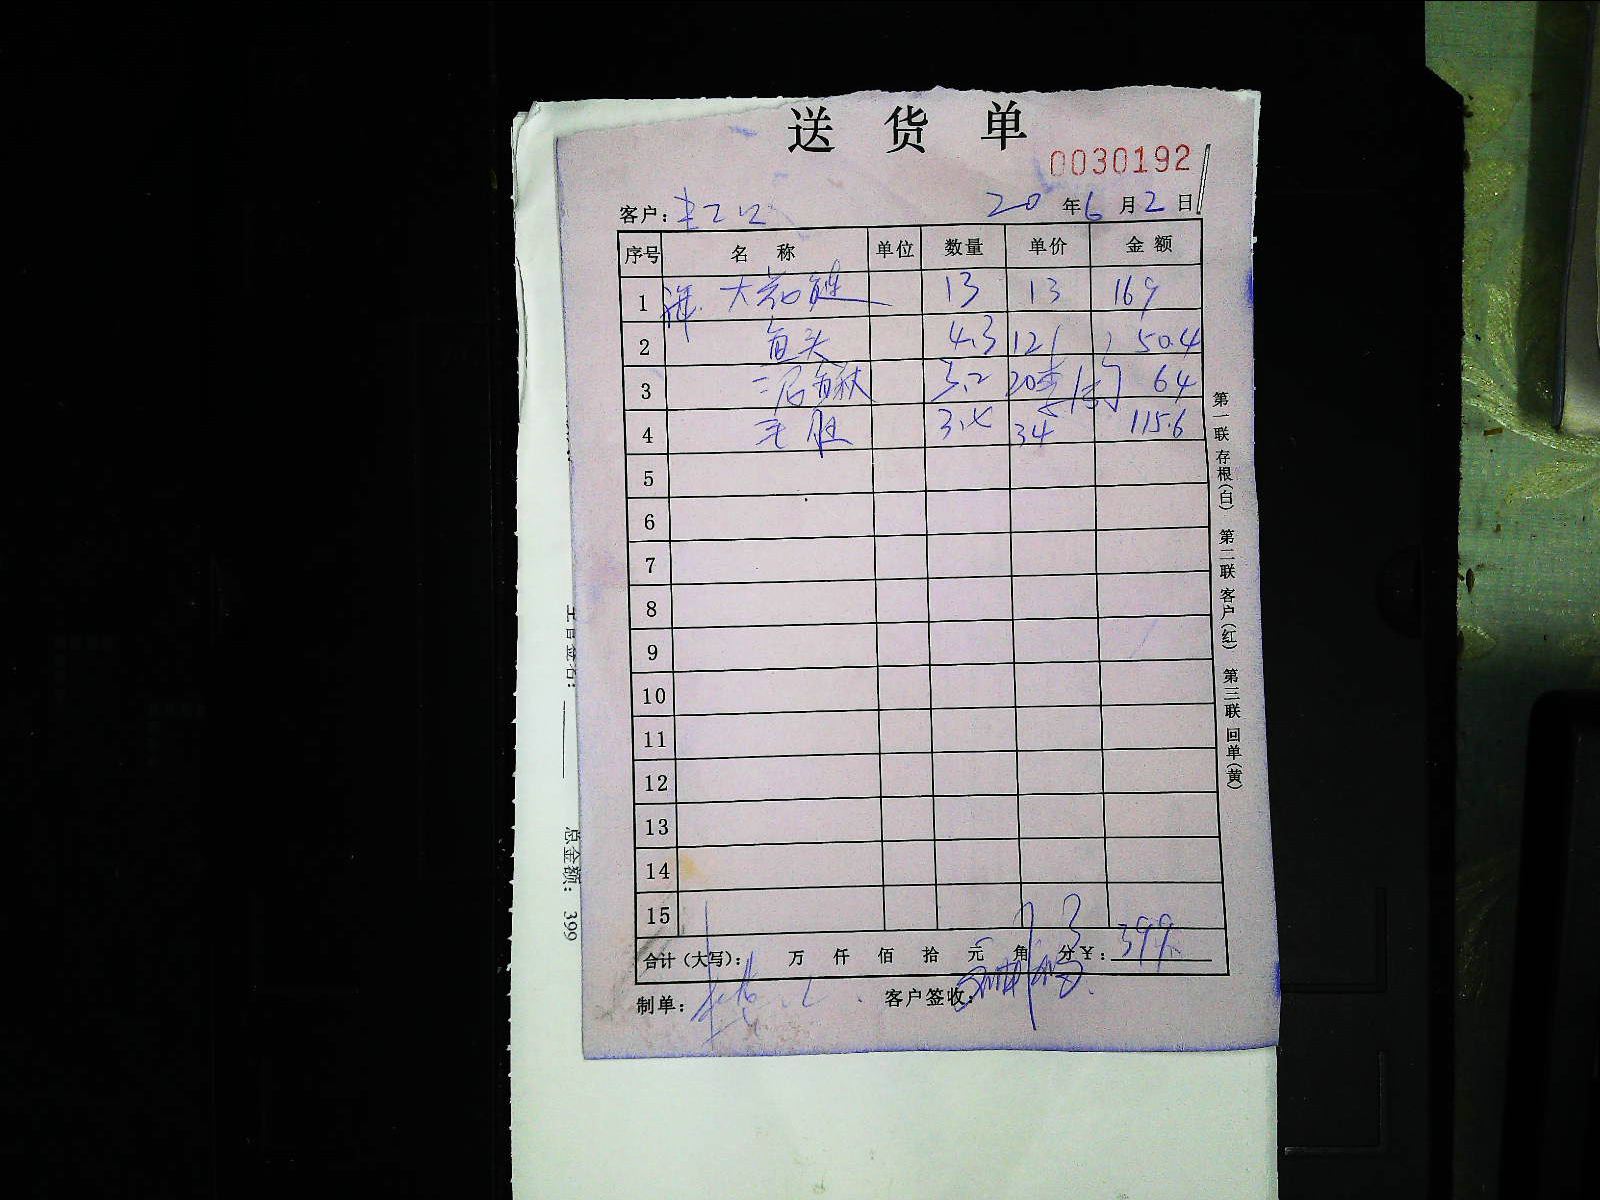 送货单
0030192
客户: 20年6月2日
序号 名称 单位 数量 单价 金额
1 大花鲢 13 13 169
2 鱼头 4.3 12 50.4
3 泥鳅 3.2 20 64
4 毛肚 3.4 34 115.6
5
6
7
8
9
10
11
12
13
14
15
合计(大写): 万 仟 佰 拾 元 角 分 ¥: 399
制单: 客户签收:
第一联 存根(白) 第二联 客户(红) 第三联 回单(黄)
总金额: 399